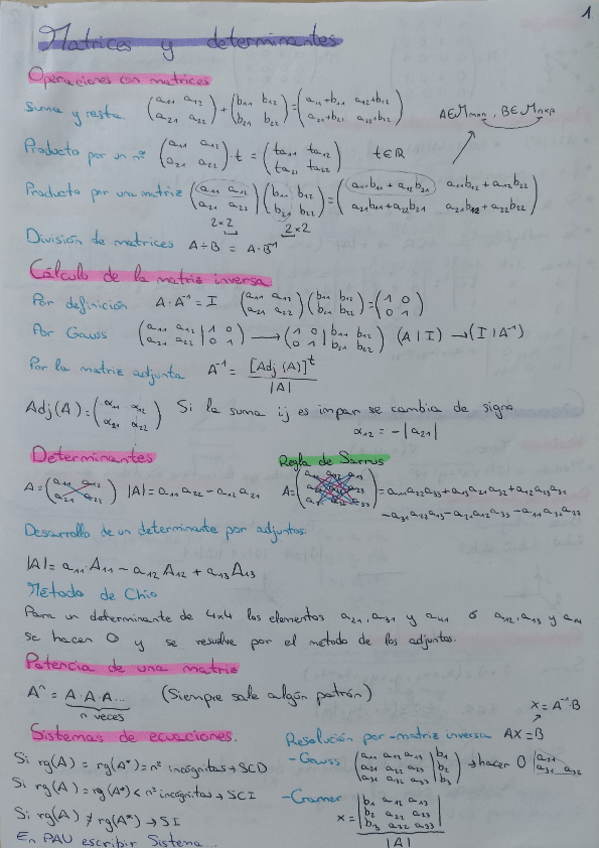 1
Matrices y determinantes
Operaciones con matrices
Suma y resta (a₁₁ a₁₂ / a₂₁ a₂₂) + (b₁₁ b₁₂ / b₂₁ b₂₂) = (a₁₁+b₁₁ a₁₂+b₁₂ / a₂₁+b₂₁ a₂₂+b₂₂) A∈Mmxn, B∈Mnxp
Producto por un nº (a₁₁ a₁₂ / a₂₁ a₂₂) · t = (ta₁₁ ta₁₂ / ta₂₁ ta₂₂) t∈R
Producto por una matriz (a₁₁ a₁₂ / a₂₁ a₂₂) (b₁₁ b₁₂ / b₂₁ b₂₂) = (a₁₁b₁₁ + a₁₂b₂₁ a₁₁b₁₂ + a₁₂b₂₂ / a₂₁b₁₁ + a₂₂b₂₁ a₂₁b₁₂ + a₂₂b₂₂)
2x2 2x2
División de matrices A÷B = A·B⁻¹
Cálculo de la matriz inversa
Por definición A·A⁻¹ = I (a₁₁ a₁₂ / a₂₁ a₂₂) (b₁₁ b₁₂ / b₂₁ b₂₂) = (1 0 / 0 1)
Por Gauss (a₁₁ a₁₂ | 1 0 / a₂₁ a₂₂ | 0 1) → (1 0 | b₁₁ b₁₂ / 0 1 | b₂₁ b₂₂) (A|I) → (I|A⁻¹)
Por la matriz adjunta A⁻¹ = [Adj(A)]ᵗ / |A|
Adj(A) = (α₁₁ α₁₂ / α₂₁ α₂₂) Si la suma ij es impar se cambia de signo
α₁₂ = -|a₂₁|
Determinantes
Regla de Sarrus
A = (a₁₁ a₁₂ / a₂₁ a₂₂) |A| = a₁₁a₂₂ - a₁₂a₂₁
A = (a₁₁ a₁₂ a₁₃ / a₂₁ a₂₂ a₂₃ / a₃₁ a₃₂ a₃₃) = a₁₁a₂₂a₃₃ + a₁₃a₂₁a₃₂ + a₁₂a₂₃a₃₁
- a₃₁a₂₂a₁₃ - a₂₁a₁₂a₃₃ - a₁₁a₃₂a₂₃
Desarrollo de un determinante por adjuntos:
|A| = a₁₁·A₁₁ - a₁₂A₁₂ + a₁₃A₁₃
Método de Chio
Para un determinante de 4x4 los elementos a₂₁, a₃₁ y a₄₁ ó a₁₂, a₁₃ y a₁₄
se hacen 0 y se resuelve por el metodo de los adjuntos.
Potencia de una matriz
Aⁿ = A·A·A... (Siempre sale algún patrón)
n veces
Sistemas de ecuaciones.
x = A⁻¹·B
Resolución por -matriz inversa AX = B
Si rg(A) = rg(A*) = nº incógnitas → SCD
-Gauss (a₁₁ a₁₂ a₁₃ | b₁ / a₂₁ a₂₂ a₂₃ | b₂ / a₃₁ a₃₂ a₃₃ | b₃) → hacer 0 |a₂₁ / a₃₁ a₃₂
Si rg(A) = rg(A*) < nº incógnitas → SCI
-Cramer x = |b₁ a₁₂ a₁₃ / b₂ a₂₂ a₂₃ / b₃ a₃₂ a₃₃| / |A|
Si rg(A) ≠ rg(A*) → SI
En PAU escribir Sistema...